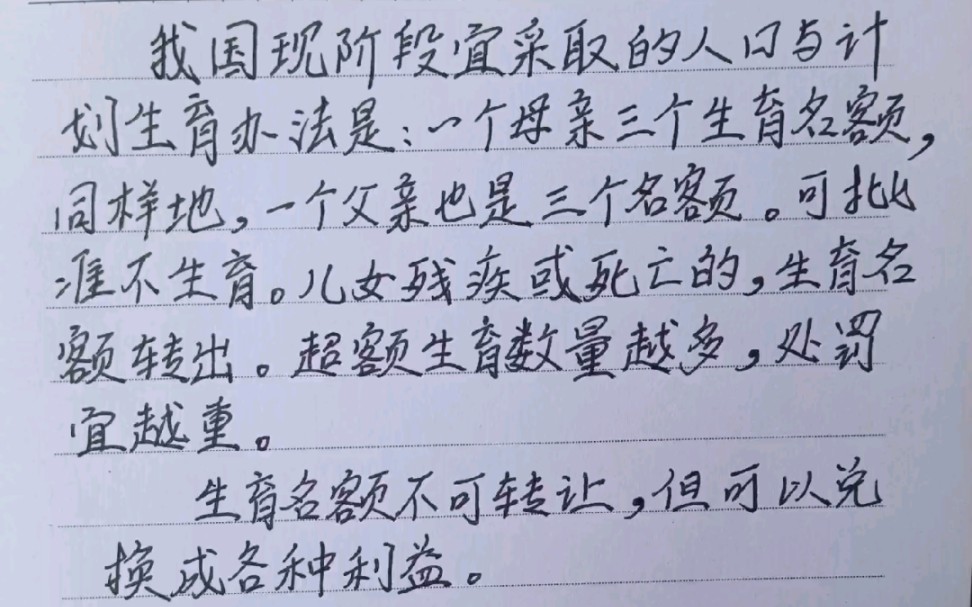 我国现阶段宜采取的人口与计
划生育办法是：一个母亲三个生育名额，
同样地，一个父亲也是三个名额。可批
准不生育。儿女残疾或死亡的，生育名
额转出。超额生育数量越多，处罚
宜越重。
生育名额不可转让，但可以兑
换成各种利益。